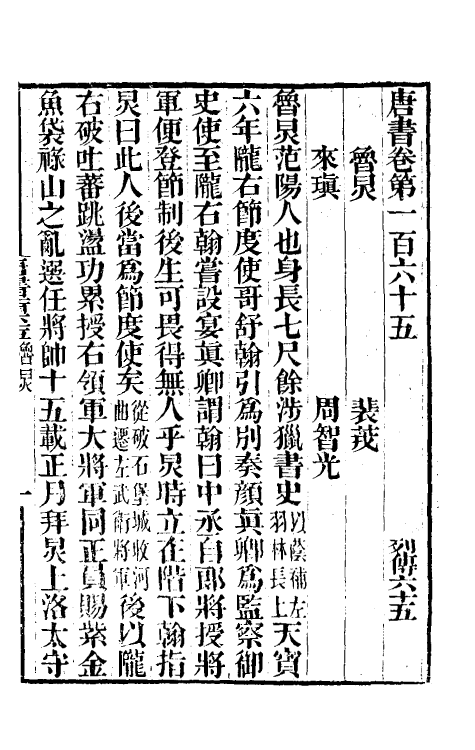 唐書卷第一百六十五
列傳六十五
魯炅
裴茂
來瑱
周智光
魯炅范陽人也身長七尺餘涉獵書史以蔭補左羽林長上天寶
六年隴右節度使哥舒翰引爲別奏顏眞卿爲監察御
史使至隴右翰嘗設宴眞卿謂翰曰中丞自郎將授將
軍便登節制後生可畏得無人乎炅時立在階下翰指
炅曰此人後當爲節度使矣從破石堡城收河曲遷左武衛將軍後以隴
右破吐蕃跳盪功累授右領軍大將軍同正員賜紫金
魚袋祿山之亂選任將帥十五載正月拜炅上洛太守
魯炅
一